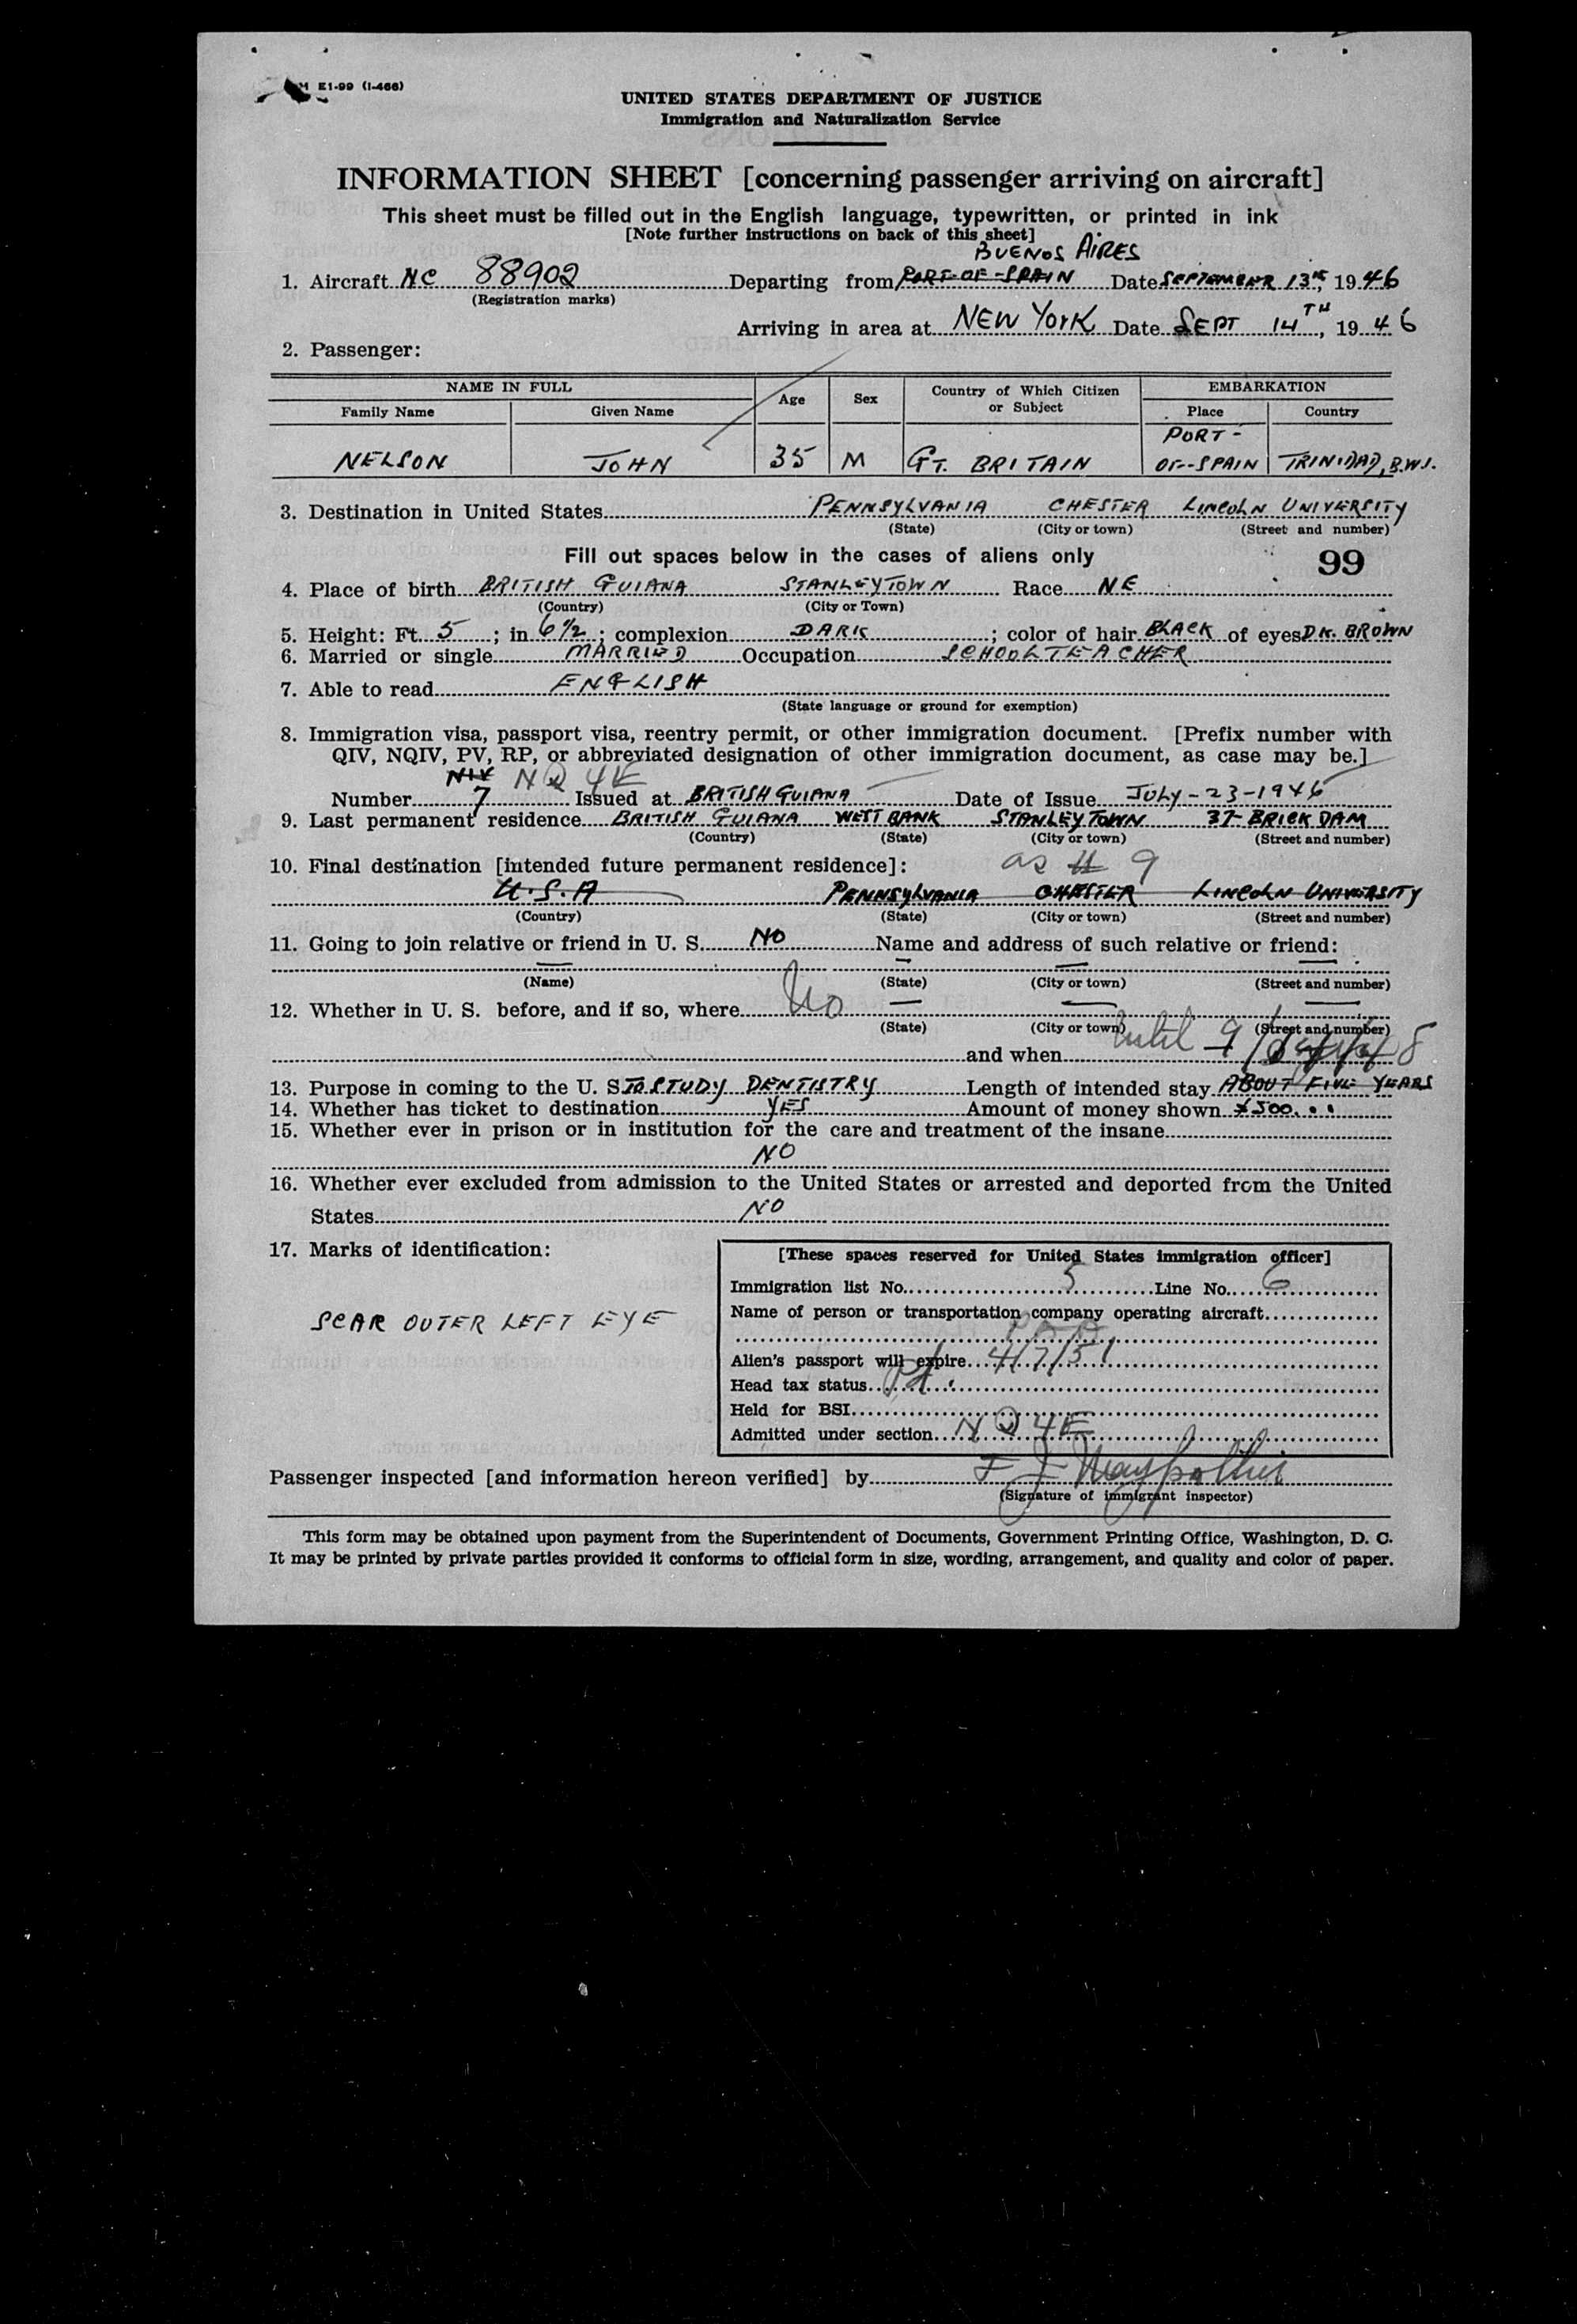 M E1-99 (I-466)
UNITED STATES DEPARTMENT OF JUSTICE
Immigration and Naturalization Service
INFORMATION SHEET [concerning passenger arriving on aircraft]
This sheet must be filled out in the English language, typewritten, or printed in ink
[Note further instructions on back of this sheet]
BUENOS AIRES
1. Aircraft NC 88902 Departing from PORT-OF-SPAIN Date SEPTEMBER 13th, 1946
(Registration marks)
Arriving in area at NEW YORK Date SEPT 14TH, 1946
2. Passenger:
NAME IN FULL Age Sex Country of Which Citizen or Subject EMBARKATION
Family Name Given Name Place Country
PORT-
NELSON JOHN 35 M GT. BRITAIN OF-SPAIN TRINIDAD, B.W.I.
3. Destination in United States PENNSYLVANIA CHESTER LINCOLN UNIVERSITY
(State) (City or town) (Street and number)
Fill out spaces below in the cases of aliens only 99
4. Place of birth BRITISH GUIANA STANLEYTOWN Race NE
(Country) (City or Town)
5. Height: Ft. 5; in 6½; complexion DARK; color of hair BLACK of eyes DK. BROWN
6. Married or single MARRIED Occupation SCHOOLTEACHER
7. Able to read ENGLISH
(State language or ground for exemption)
8. Immigration visa, passport visa, reentry permit, or other immigration document. [Prefix number with
QIV, NQIV, PV, RP, or abbreviated designation of other immigration document, as case may be.]
NIV NQ 4E
Number 7 Issued at BRITISH GUIANA Date of Issue JULY-23-1946
9. Last permanent residence BRITISH GUIANA WEST BANK STANLEY TOWN 37-BRICK DAM
(Country) (State) (City or town) (Street and number)
10. Final destination [intended future permanent residece]: as # 9
U.S.A PENNSYLVANIA CHESTER LINCOLN UNIVERSITY
(Country) (State) (City or town) (Street and number)
11. Going to join relative or friend in U. S. NO Name and address of such relative or friend:
(Name) (State) (City or town) (Street and number)
12. Whether in U. S. before, and if so, where No
(State) (City or town) (Street and number)
until 9/
and when
13. Purpose in coming to the U. S. TO STUDY DENTISTRY Length of intended stay ABOUT FIVE YEARS
14. Whether has ticket to destination YES Amount of money shown $500.
15. Whether ever in prison or in institution for the care and treatment of the insane
NO
16. Whether ever excluded from admission to the United States or arrested and deported from the United
States NO
17. Marks of identification:
SCAR OUTER LEFT EYE
[These spaces reserved for United States immigration officer]
Immigration list No. 5 Line No. 6
Name of person or transportation company operating aircraft
PAA
Alien's passport will expire 4/7/51
Head tax status Pd.
Held for BSI
Admitted under section NQ 4E
Passenger inspected [and information hereon verified] by F J
(Signature of immigrant inspector)
This form may be obtained upon payment from the Superintendent of Documents, Government Printing Office, Washington, D. C.
It may be printed by private parties provided it conforms to official form in size, wording, arrangement, and quality and color of paper.